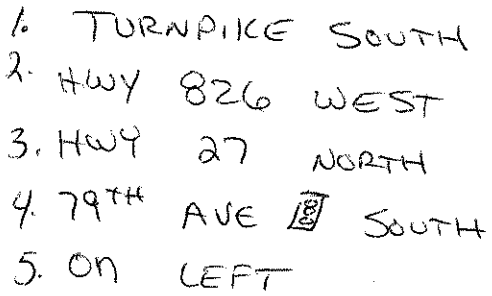 1. TURNPIKE SOUTH
2. HWY 826 WEST
3. HWY 27 NORTH
4. 79TH AVE SOUTH
5. On LEFT